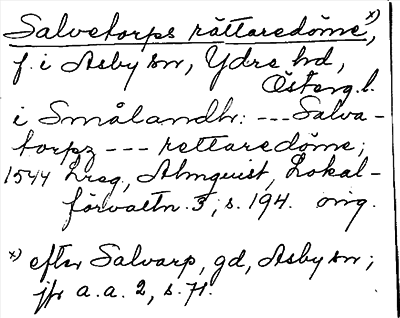 Salvetorps rättaredöme x),
f. i Asby sn, Ydre hd,
Österg. l.
i Smålandh: --- Salva-
torpz --- rettaredöme;
1544 Lreg, Almquist, Lokal-
förvaltn. 3, s. 194. orig.
x) efter Salvarp, gd, Asby sn;
jfr a. a. 2, s. 71.